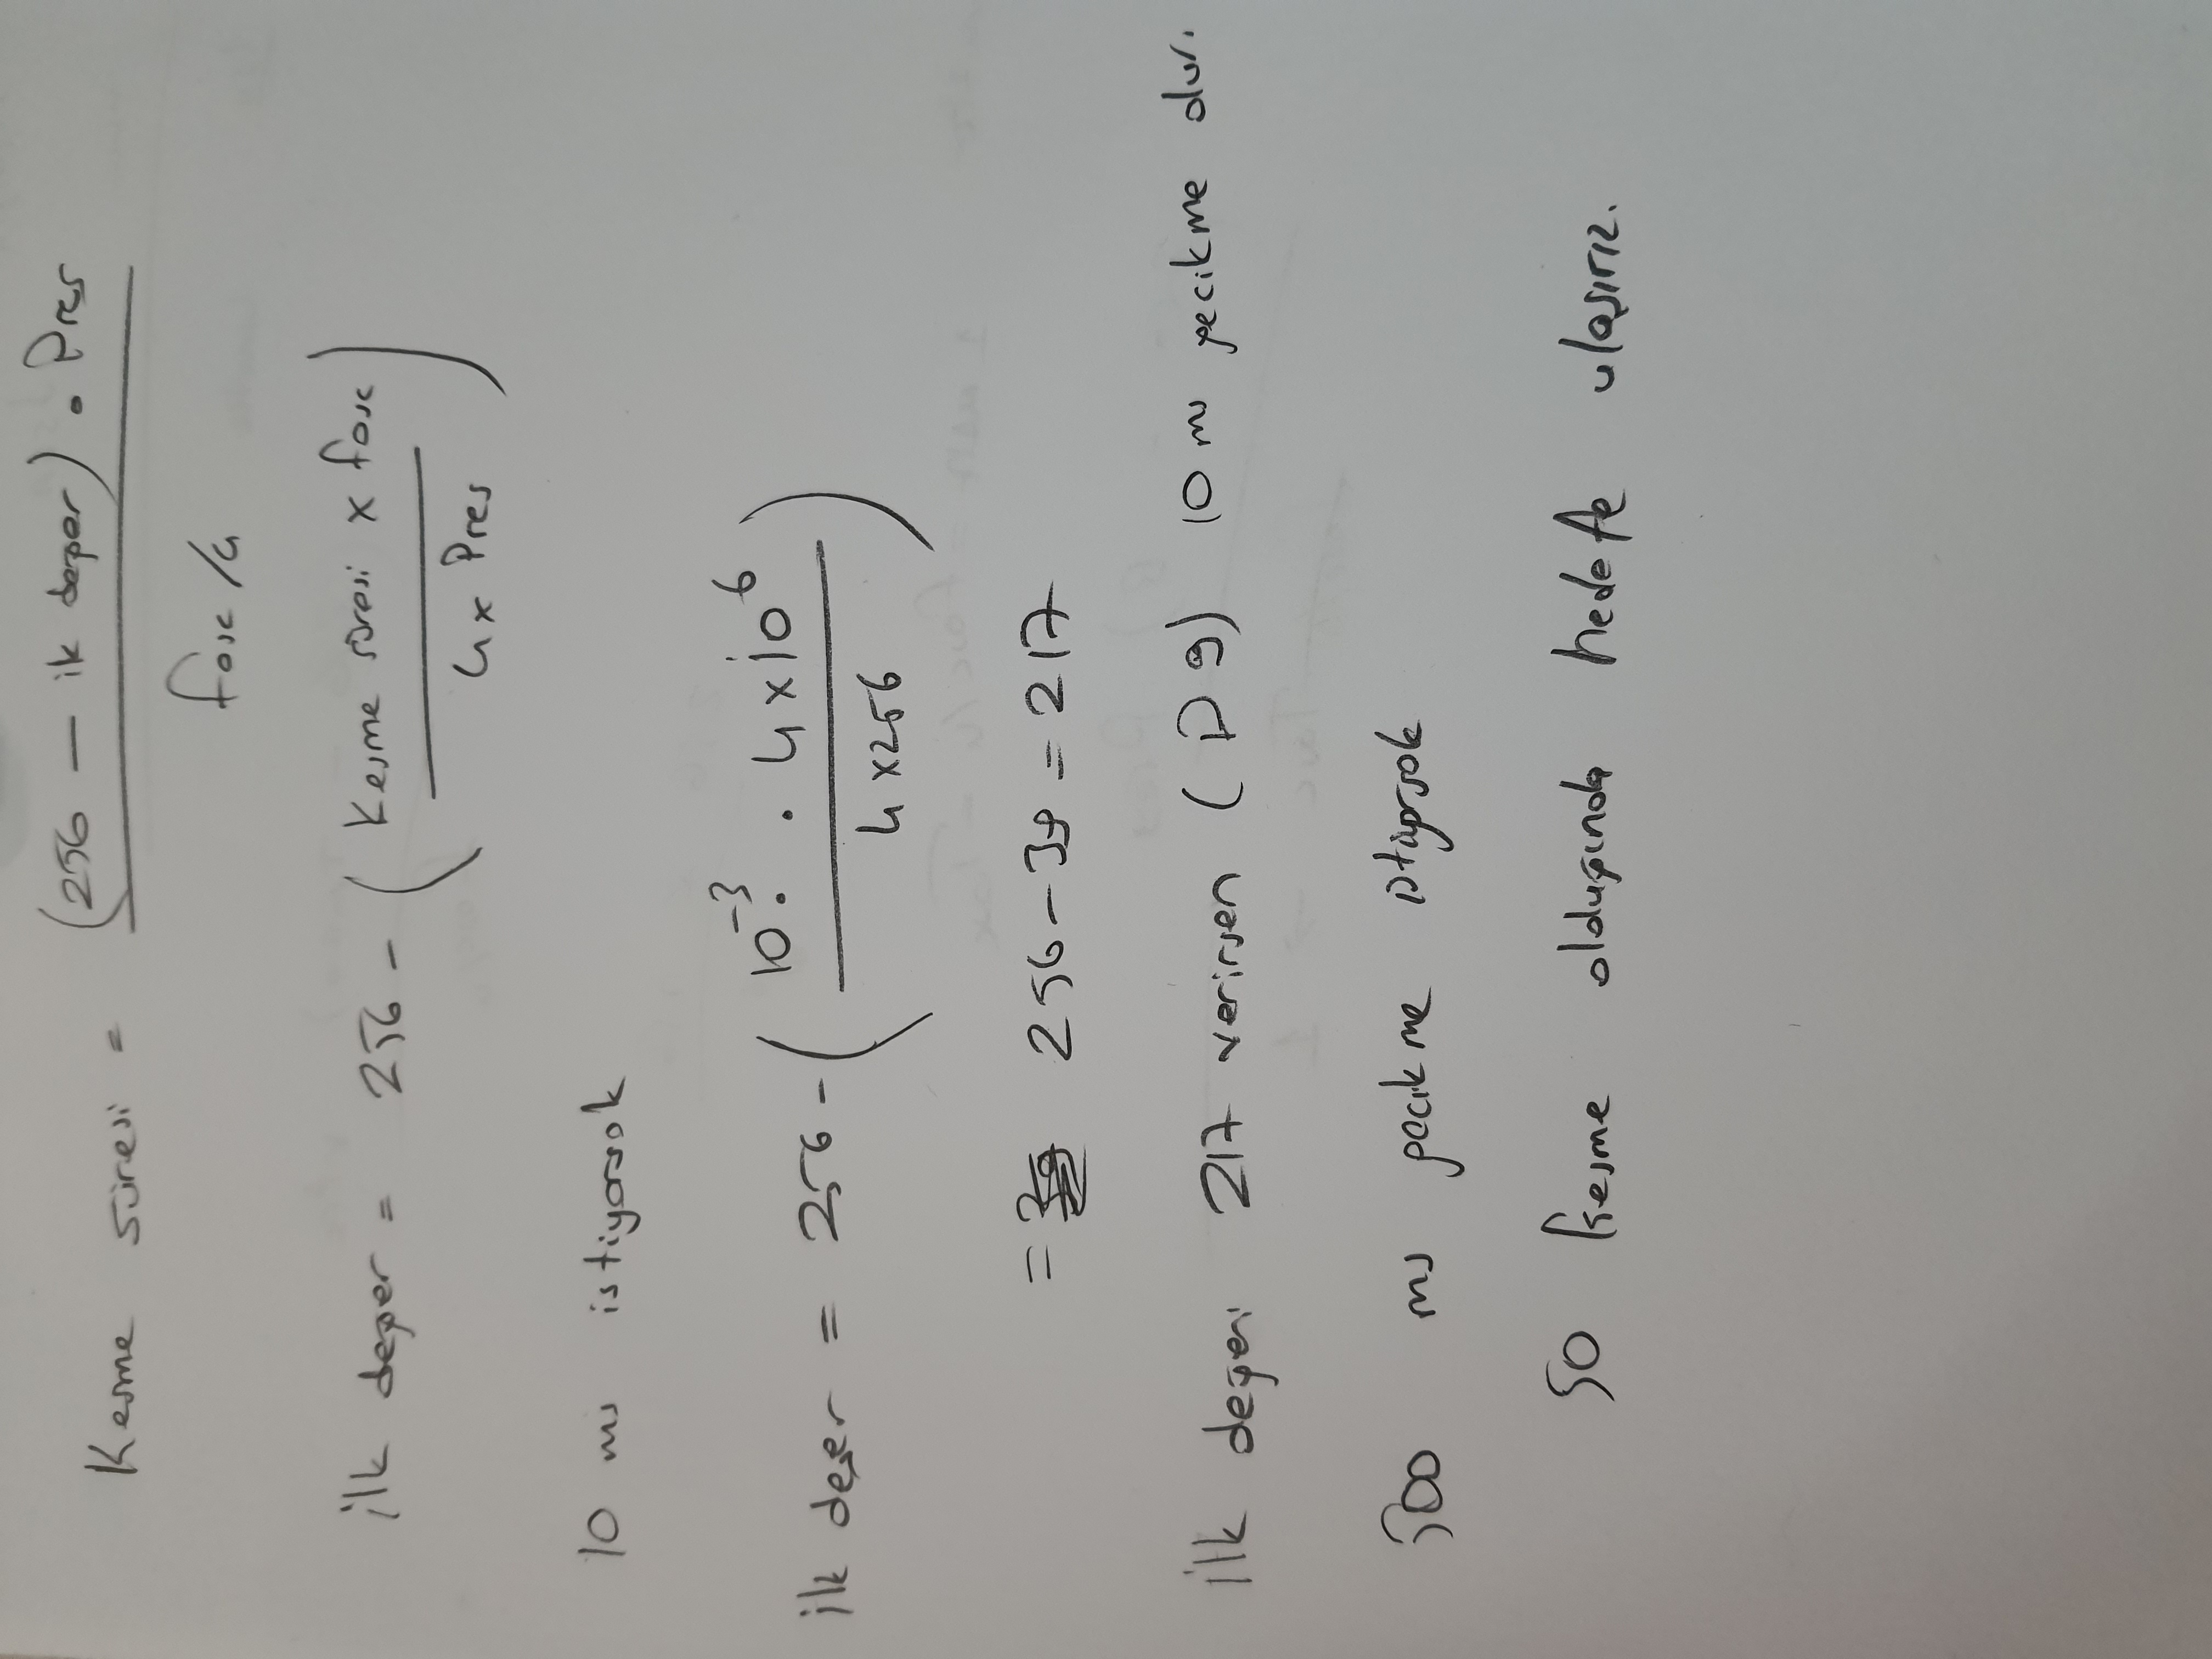 Kesme süresi = (256 — ik değer) . Pres
fosc /4
ilk değer = 256 - ( Kesme süresi x fosc
4x Pres )
10 ms istiyorsak
ilk değer = 256 - ( 10⁻³ . 4x10⁶
4 x256 )
= 256 - 39 = 217
ilk değeri 217 verirsen ( D9) 10 ms gecikme olur.
500 ms gecikme istiyorsak
50 kesme olduğunda hedefe ulaşırız.